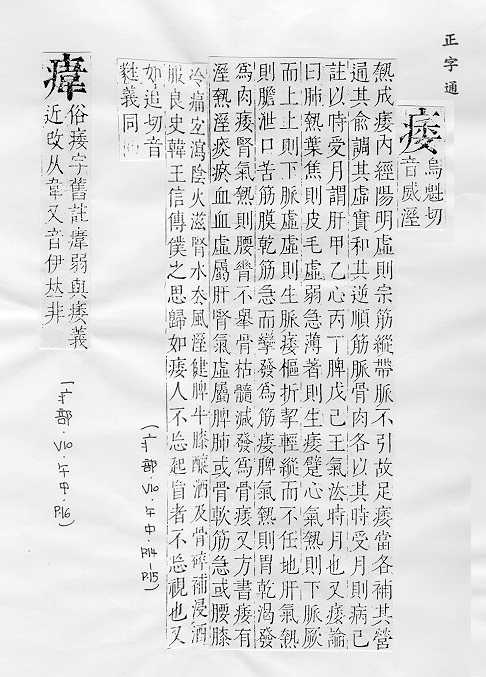 正字通
痿
烏魁切
音威溼
熱成痿內經陽明虛則宗筋縱帶脈不引故足痿當各補其營
通其兪調其虛實和其逆順筋脈骨肉各以其時受月則病已
註以時受月謂肝甲乙心丙丁脾戊己王氣法時月也又痿論
曰肺熱葉焦則皮毛虛弱急薄著則生痿躄心氣熱則下脈厥
而上上則下脈虛虛則生脈痿樞折挈輕縱而不任地肝氣熱
則膽泄口苦筋膜乾筋急而攣發爲筋痿脾氣熱則胃乾渴發
爲肉痿腎氣熱則腰脊不舉骨枯髓減發爲骨痿又方書痿有
溼熱溼痰瘀血血虛屬肝腎氣虛屬脾肺或骨軟筋急或腰膝
冷痛宜瀉陰火滋腎水袪風溼健脾牛膝釀酒及骨碎補浸酒
服良史韓王信傳僕之思歸如痿人不忘起盲者不忘視也又
如追切音
義同
(疒部.V10.午中.P.14-P.15)
俗痿字舊註瘒弱與痿義
近改从韋又音伊𠀤非
(疒部.V10.午中.P.16)